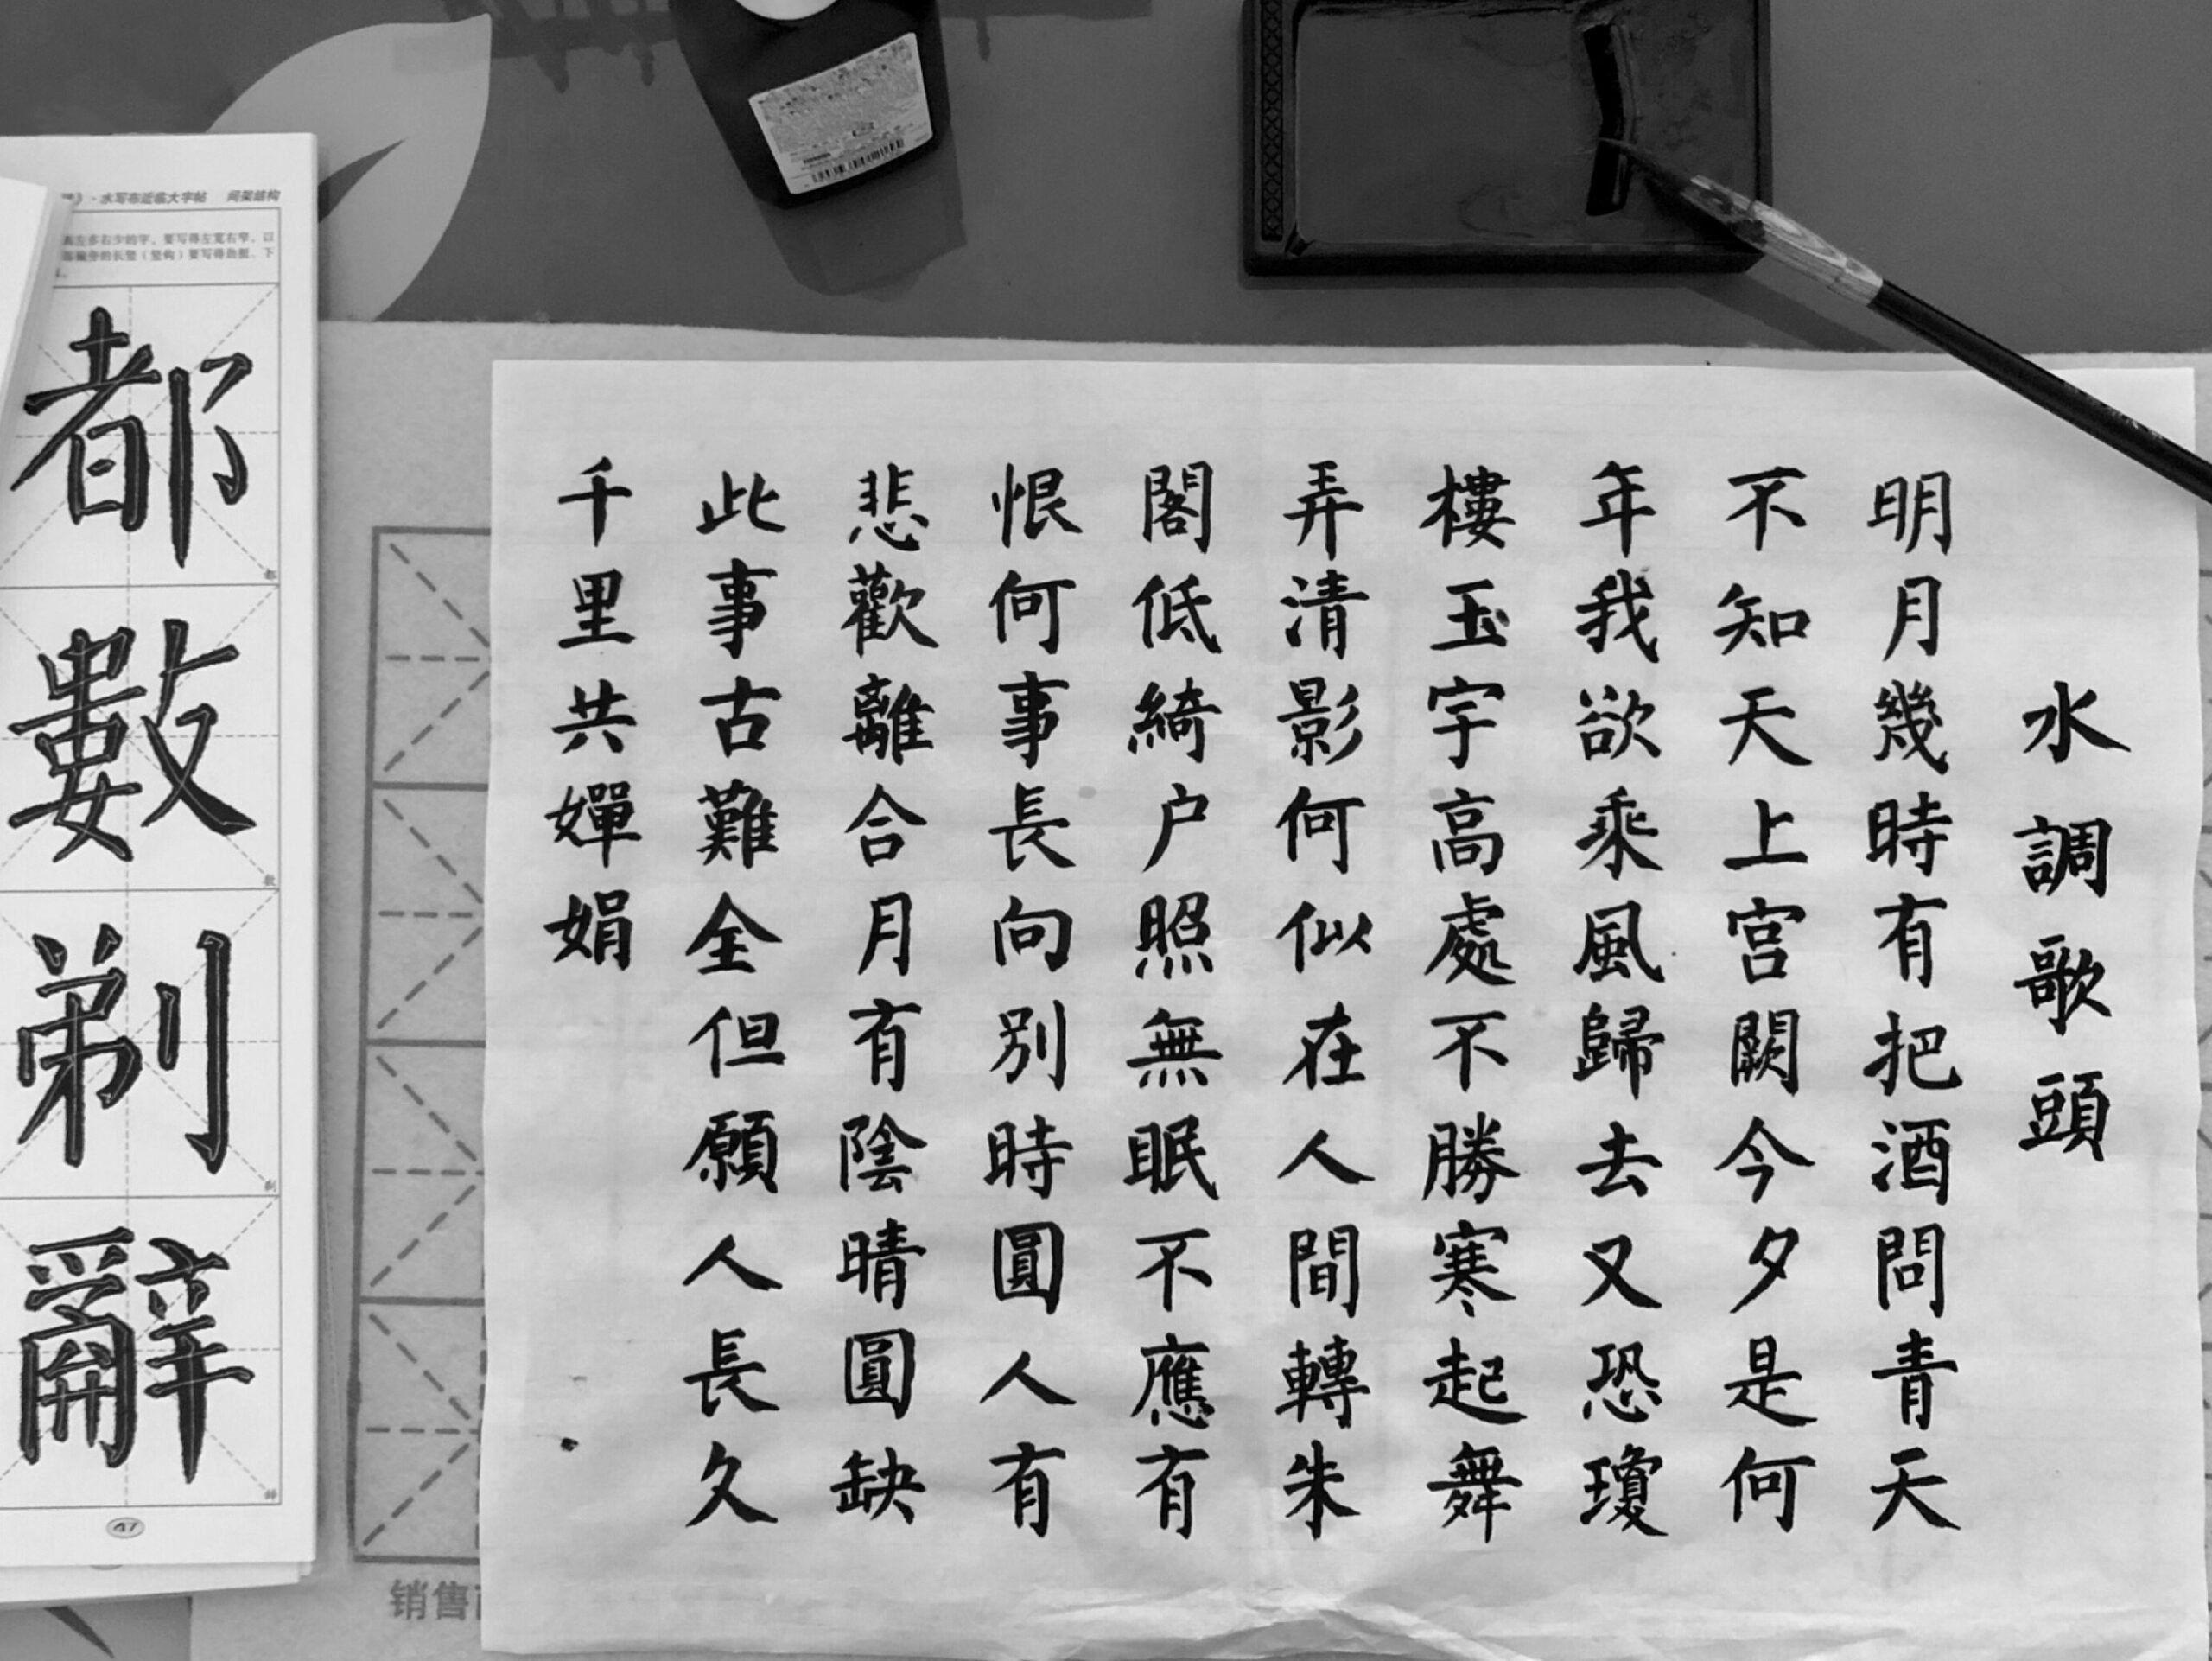 水調歌頭
明月幾時有把酒問青天
不知天上宫闕今夕是何
年我欲乘風歸去又恐瓊
樓玉宇高處不勝寒起舞
弄清影何似在人間轉朱
閣低綺户照無眠不應有
恨何事長向别時圓人有
悲歡離合月有陰晴圓缺
此事古難全但願人長久
千里共嬋娟
）·水写布近临大字帖 间架结构
左多右少的字，要写得左宽右窄，以
旁的长竖（竖钩）要写得劲挺，下
都
數
剃
辭
47
销售